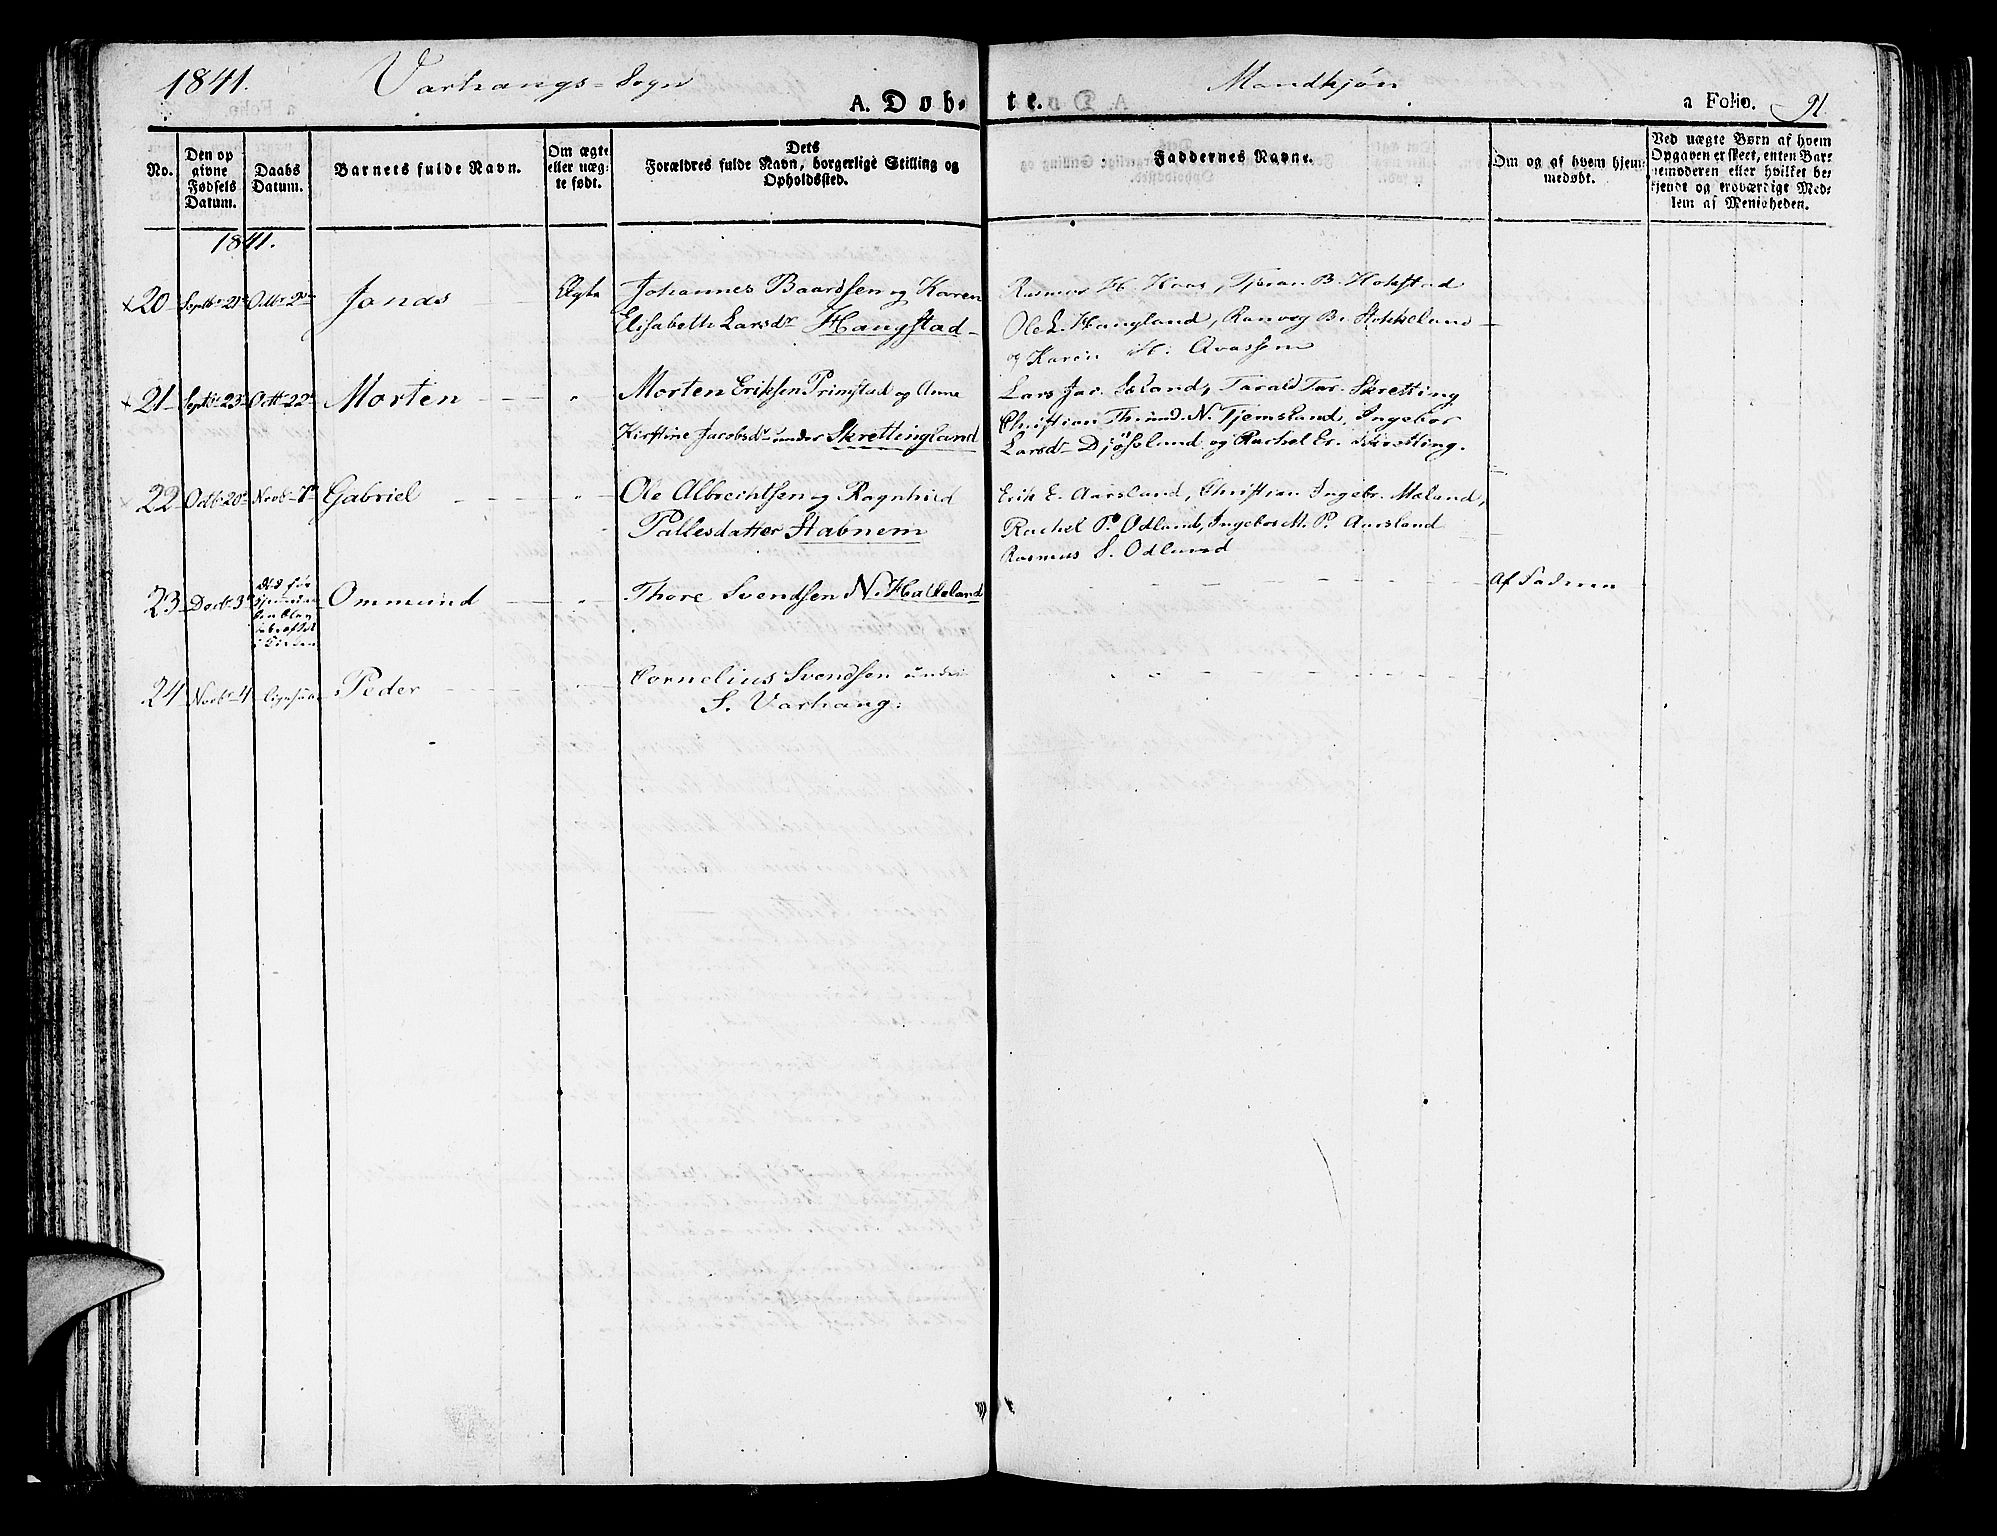 1841. Varhaugs-Sogn Mandkjøn
A. Døb-te. a Folio. 91.
No. Den opgivne Fødsels Datum. Daabs Datum. Barnets fulde Navn. Om ægte eller uægte født. Dets Forældres fulde Navn, borgerlige Stilling og Opholdssted. Faddernes Navne. Om og af hvem hjemmedøbt. Ved uægte Børn af hvem Opgaven er skeet, enten Barnemoderen eller hvilket bekjendt og troværdigt Medlem af Menigheden.
1841.
20 Septbr 21 Octbr Jonas Ægte Johannes Baardsen og Karen Rasmus H. Haar, B. Hobstad
Elisabeth Larsdr Haugstad Ole L. Haugland, Ranveg B. Stokkeland
og Karen H.
21 Septbr 23 Octbr 22 Morten " Morten Eriksen Primstad og Anne Lars Jac. Tarald Tar. Skretting
Kirstine Jacobsdr under Skrettingland Christian N. Tjemsland, Ingebor
Larsd og Rachel Er. Skretting.
22 Octbr 20 Novbr Gabriel " Ole Albrechtsen og Ragnhild Erik E. Aarsland, Christian Ingebr. Maland,
Pallesdatter Stabnem Rachel P. Odland, Ingebor M. P. Aarsland
Rasmus S. Odland
23 Ommund " Thore Svendsen N. Af Faderen
24 Novbr 4 Peder " Cornelius Svendsen under
S. Varhaug.